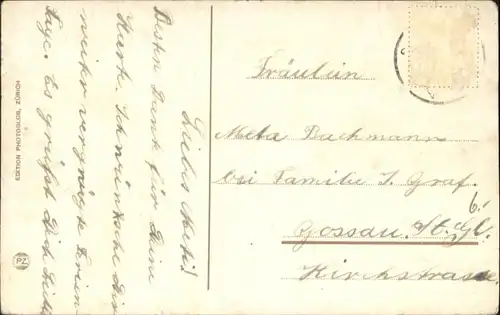 Liebes Meti!
Besten Dank für Deine
Karte. Ich wünsche Dir
weiter vergnügte Ferien-
tage. Es grüsst Dich
Fräulein
Meta Bachmann
bei Familie J. Graf.
Gossau. St. Gl.
Kirchstrasse 6.
EDITION PHOTOGLOB, ZÜRICH
PZ